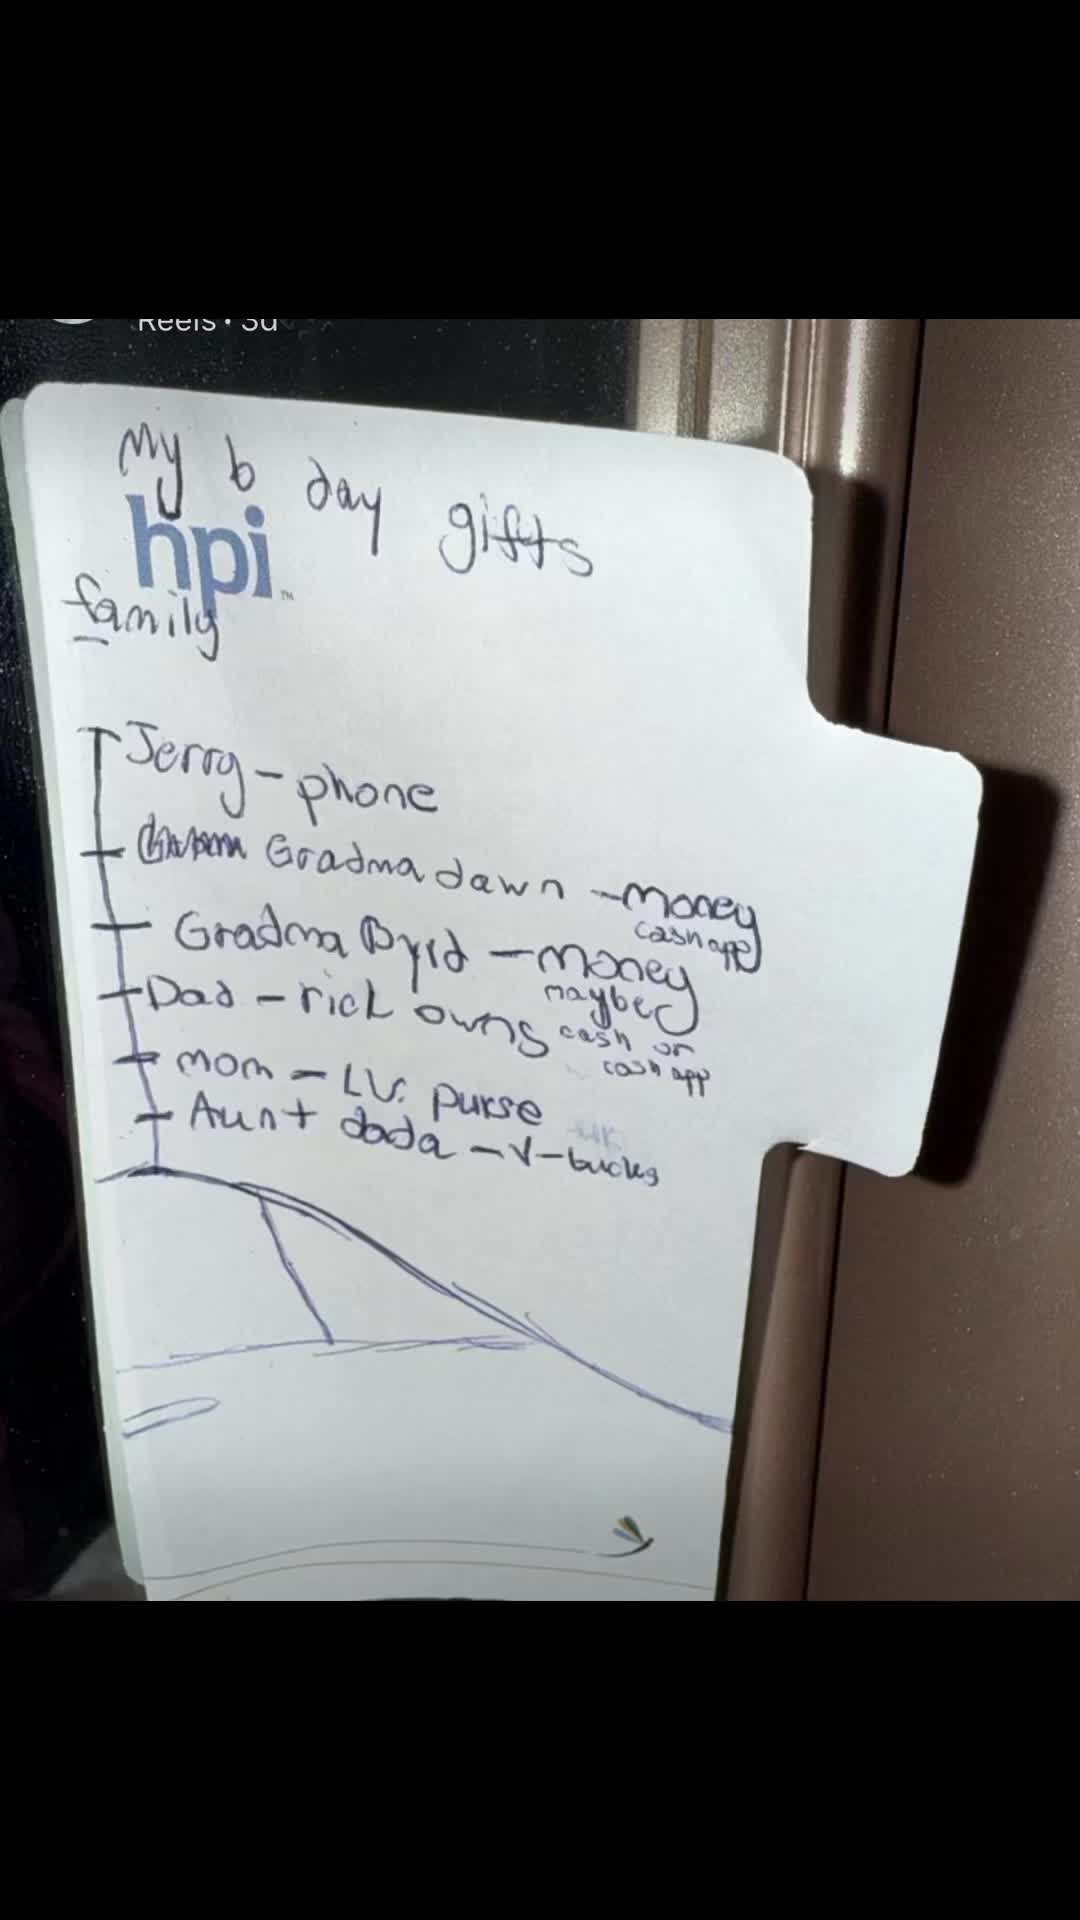 Reels • 3d
My b day gifts
hpi™
family
Jerry - phone
Gradma dawn - money
cash app
Gradma Byrd - money
maybe
cash or
cash app
Dad - rick owns
mom - LV. purse
Aunt dada - V-bucks